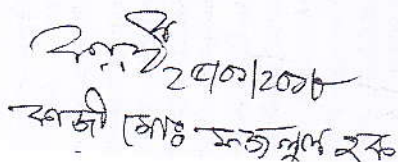 ২৫/০১/২০১৮
কাজী মোঃ ফজলুল হক